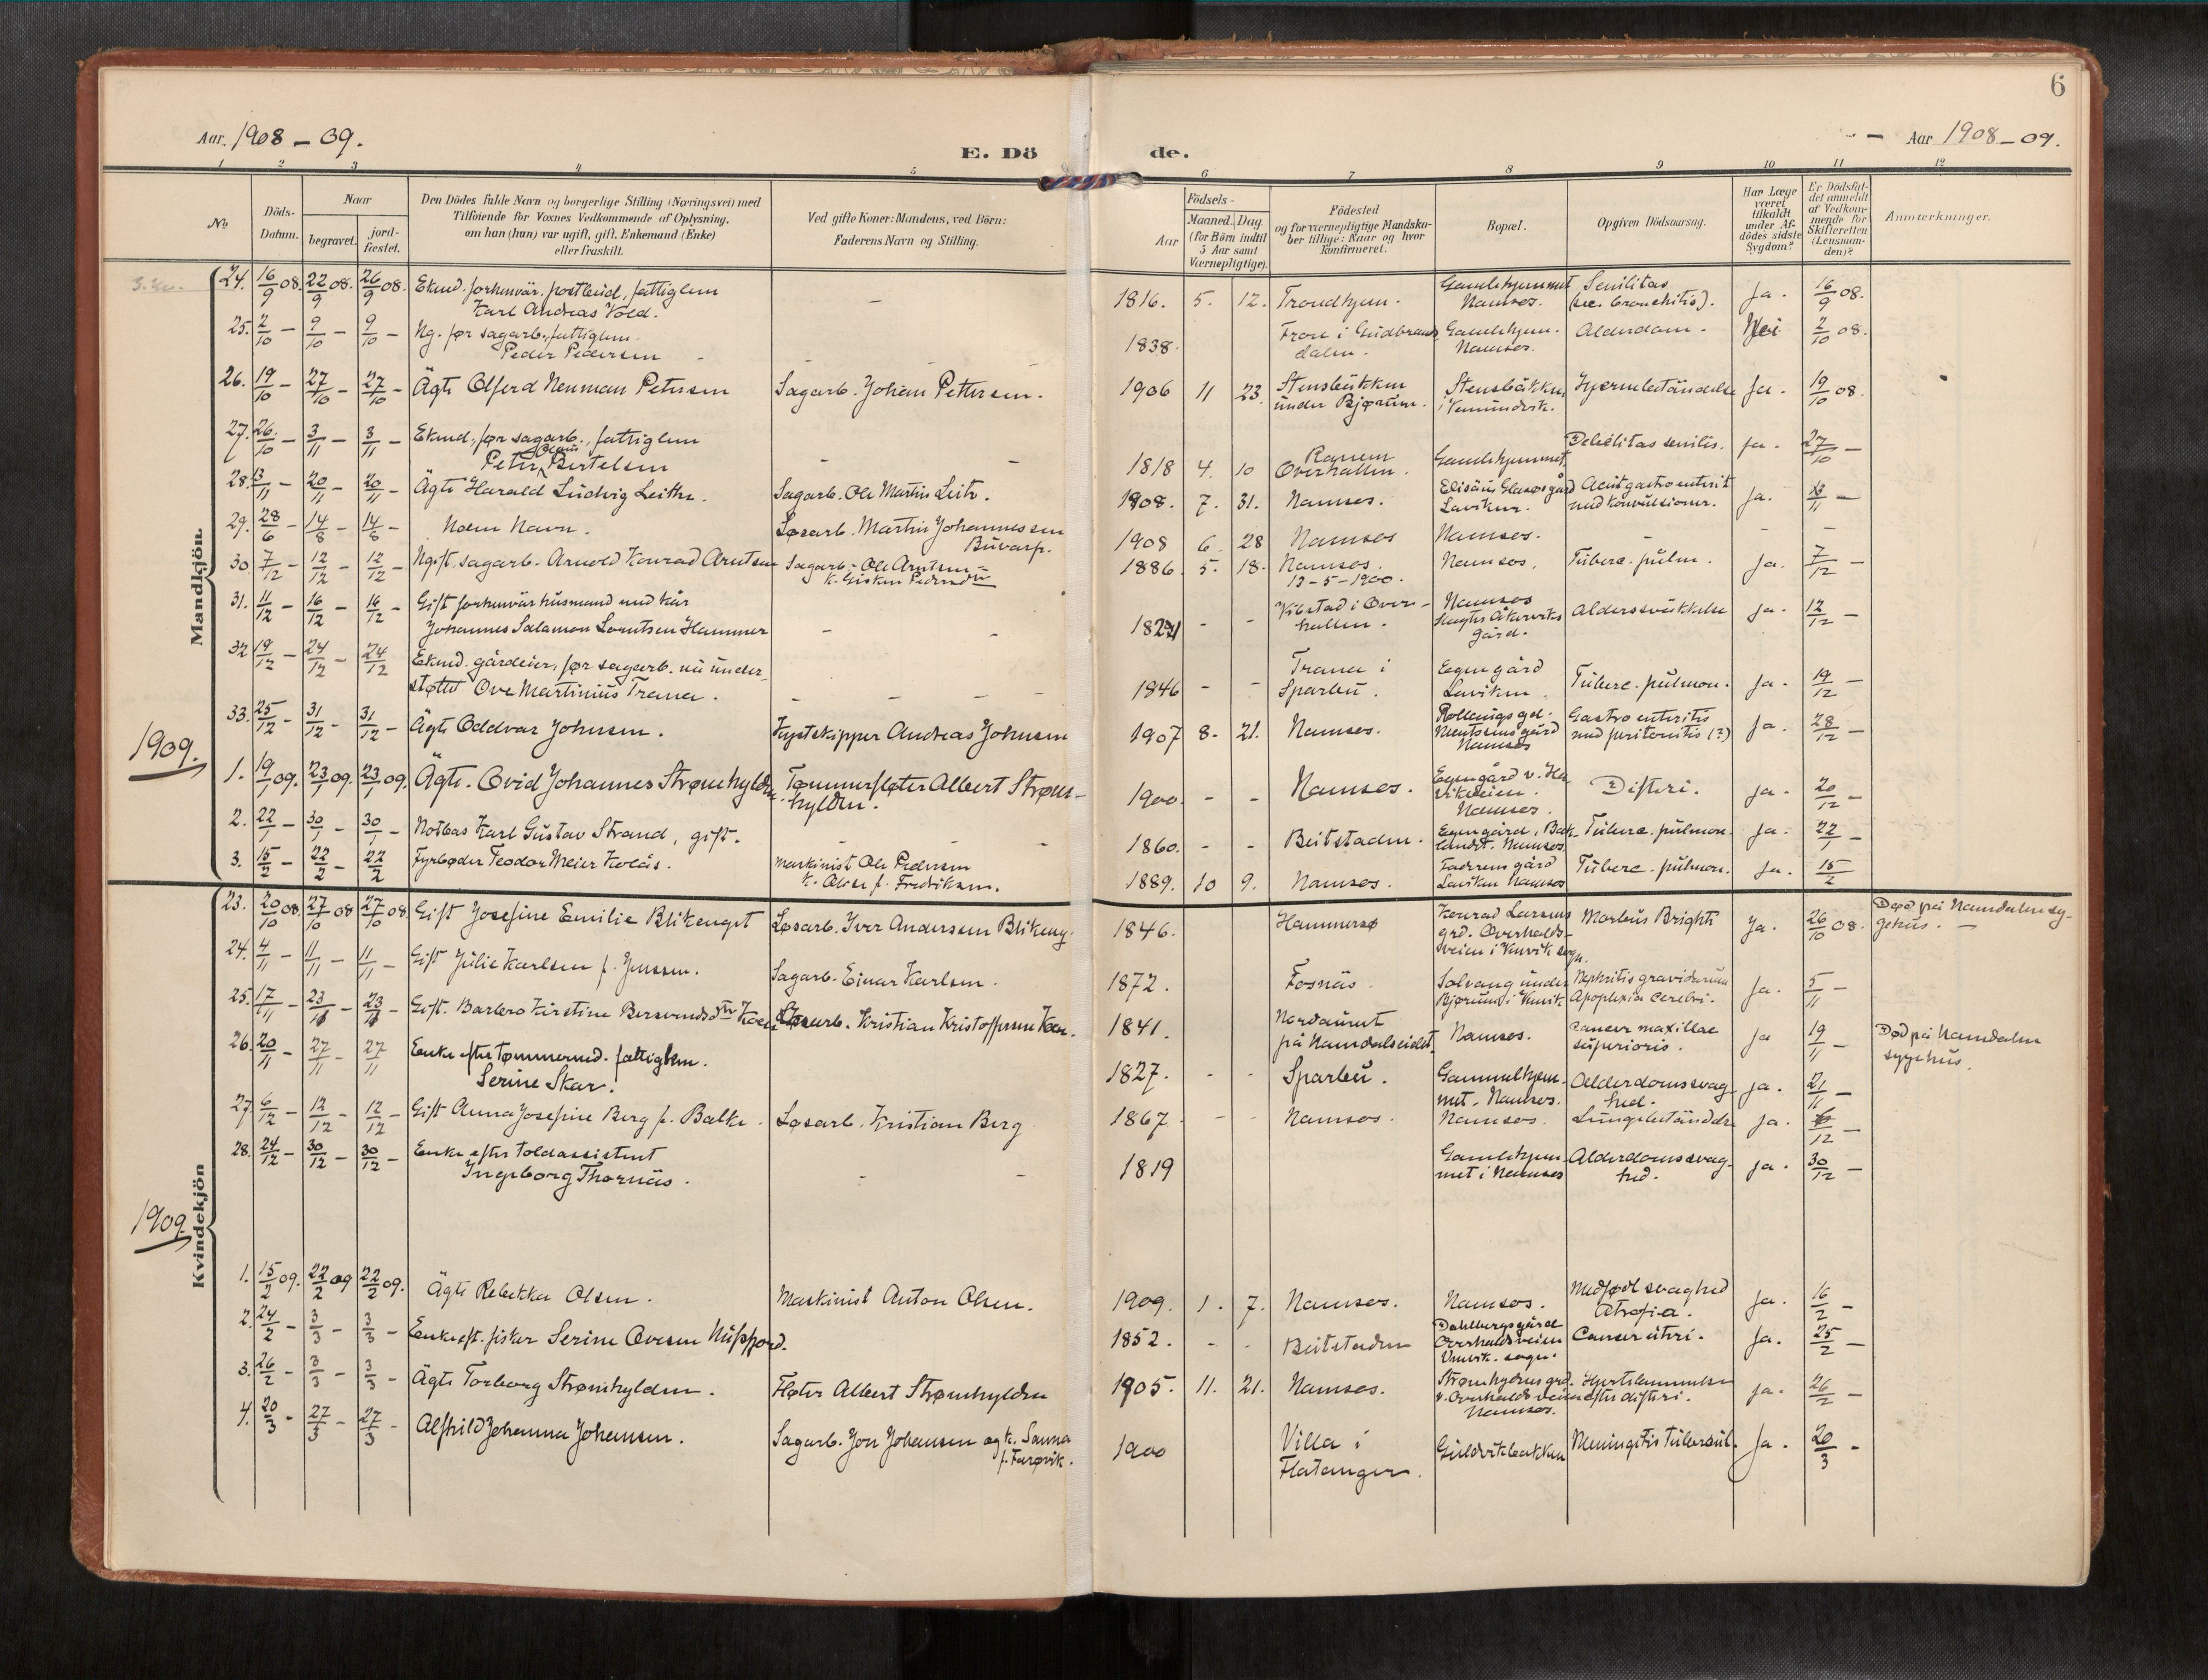 6
Aar 1908 - 09.
E. Dö de.
Aar 1908 - 09.
1 2 3 4 5 6 7 8 9 10 11 12
No
Döds-
Datum.
Naar
begravet.
jord-
fæstet.
Den Dödes fulde Navn og borgerlige Stilling (Næringsvei) med
Tilföiende for Voxnes Vedkommende af Oplysning,
om han (hun) var ugift, gift, Enkemand (Enke)
eller fraskilt.
Ved gifte Koner: Mandens, ved Börn:
Faderens Navn og Stilling.
Födsels-
Aar
Maaned. Dag.
(for Börn indtil
5 Aar samt
Værnepligtige).
Födested
og for værnepligtige Mandska-
ber tillige: Naar og hvor
konfirmeret.
Bopæl.
Opgiven Dödsaarsag.
Har Læge
været
tilkaldt
under Af-
dödes sidste
Sygdom?
Er Dödsfal-
det anmeldt
af Vedkom-
mende for
Skifteretten
(Lensman-
den)?
Anmærkninger.
Mandkjön
24. 16/9 08. 22/9 08. 26/9 08. Ekmd. forhenvær. postbud, fattiglem
Karl Andreas Vold. — 1816. 5. 12. Trondhjem. Gamlehjemmet
Namsos. Senilitas
(sec. bronchitis). Ja. 16/9 08.
25. 2/10 — 9/10 — 9/10 — Ug. før sagarb., fattiglem.
Peder Pedersen - 1838. Fron i Gudbrands
dalen. Gamlehjem.
Namsos. Alderdom. Nei 2/10 08.
26. 19/10 — 27/10 — 27/10 — Ägte Olferd Neuman Petersen Sagarb. Johan Pettersen. 1906 11 23. Stensbäkken
under Bjørum. Stensbäkken
i Vemundvik. Hjernebetändelse Ja. 19/10 08.
27. 26/10 — 3/11 — 3/11 — Ekmd., før sagarb., fattiglem
Peter Olaus Bertelsen — — 1818 4. 10 Ranem
Overhallen. Gamlehjemmet. Debilitas senilis. Ja. 27/10 —
28. 13/11 — 20/11 — 20/11 — Ägte Harald Ludvig Leithe. Sagarb. Ole Martin Leite. 1908. 7. 31. Namsos. Elisäus Glasøsgård
Laviken. Acut gastroenterit
med konvulsioner. Ja. 13/11 —
29. 28/6 — 14/8 — 14/8 — Uden Navn. Løsarb. Martin Johannessen
Buvarp. 1908 6. 28 Namsos Namsos. - - -
30. 7/12 — 12/12 — 12/12 — Ugift. sagarb. Arnold Konrad Arntsen Sagarb. Ole Arntsen
1886. 5. 18. Namsos.
13-5-1900. Namsos. Tuberc. pulm. Ja. 7/12 —
31. 11/12 — 16/12 — 16/12 — Gift forhenvär husmand med kår
Johannes Salamon Lorntsen Hammer - - - - hallen. Namsos
gård. Alderssvækkelse Ja. 12/12 —
32 19/12 — 24/12 — 24/12 Ekmd. gårdeier, før sagarb. nu under-
støttet Ove Martinius Trana. - - - - 1846 - - Trana i
Sparbu. Egen gård
Laviken. Tuberc. pulmon. Ja. 19/12 —
33. 25/12 — 31/12 — 31/12 — Ägte Oddvar Johnsen. Kystskipper Andreas Johnsen 1907 8. 21. Namsos.
Namsos Gastroenteritis
med peritonitis (?) Ja. 28/12 —
1909.
1. 19/1 09. 23/1 09. 23/1 09. Ägte. Ovid Johannes Strømhylden. Tømmerfløter Albert Strøm-
hylden. 1900. - - Namsos. Egengård v. Ha
vikveien.
Namsos. Difteri. Ja. 20/12 —
2. 22/1 — 30/1 — 30/1 — Notbas Karl Gustav Strand, gift. - - 1860. - - Beitstaden. Egengård, Bak-
landet. Namsos. Tuberc. pulmon. Ja. 22/1 —
3. 15/2 — 22/2 — 22/2 Fyrbøder Teodor Meier Kolås. Maskinist Ole Pedersen
f. Fredriksen. 1889. 10 9. Namsos. Faderens gård
Laviken Namsos Tuberc. pulmon. Ja. 15/2
Kvindekjön
23. 20/10 08. 27/10 08 27/10 08. Gift Josefine Emilie Blikenget Løsarb. Iver Andersen Blikeng. 1846. Hammersø Konrad Larsens
grd. Overhalds-
veien i Vemvik sogn. Morbus Brighti Ja. 26/10 08. Død på Namdalens sy-
gehus. —
24. 4/11 — 11/11 — 11/11 — Gift Julie Karlsen f. Jenssen. Sagarb. Einar Karlsen. 1872. Fosnäs. Solvang under
Bjørum i Vemvik Nephritis gravidarum
Apoplexia cerebri. Ja. 5/11 —
25. 17/11 — 23/11 — 23/11 — Gift. Barbro Kirstine Bersvendsdtr Koen Løsarb. Kristian Kristoffersen Koen. 1841.
på Namdalseidet. Namsos. Cancer maxillae
superioris. Ja 19/11 — Død på Namdalens
sygehus.
26. 20/11 — 27/11 — 27/11 Enke efter tømmermd. fattiglem.
Serine Skar. 1827. - - Sparbu. Gammelhjem-
met. Namsos. Alderdomssvag-
hed. Ja. 21/11 —
27 6/12 — 12/12 — 12/12 — Gift Anna Josefine Berg f. Balke. Løsarb. Kristian Berg 1867. - - Namsos. Namsos. Lungebetändelse Ja. /12 —
28. 24/12 — 30/12 — 30/12 — Enke efter toldassistent
Ingeborg Thornäs. - - 1819 Gamlehjem-
met i Namsos Alderdomssvag-
hed. Ja. 30/12 —
1909
1. 15/2 09. 22/2 09 22/2 09. Ägte Rebekka Olsen. Maskinist Anton Olsen. 1909. 1. 7. Namsos. Namsos. Medfødt svaghed
Atrofia. Ja. 16/2 —
2. 24/2 — 3/3 — 3/3 — Enke eft. fisker Serine Ovesen Nufsfjord. 1852. - - Beitstaden Dahlbergsgård
Overhaldsveien
Vemvik. sogn. Cancer uteri. Ja. 25/2 —
3. 26/2 — 3/3 — 3/3 — Ägte Torborg Strømhylden. Fløter Albert Strømhylden 1905. 11. 21. Namsos. Strømhyldens grd.
v. Overhaldsveien
Namsos. Hjertelammelse
efter difteri. Ja. 26/2 —
4. 20/3 — 27/3 — 27/3 Alfhild Johanna Johansen. Sagarb. Jon Johansen og k. Sanna
f. Farøvik. 1900 Villa i
Flatanger. Guldvikbakken Meningitis tubercul. Ja. 20/3 -